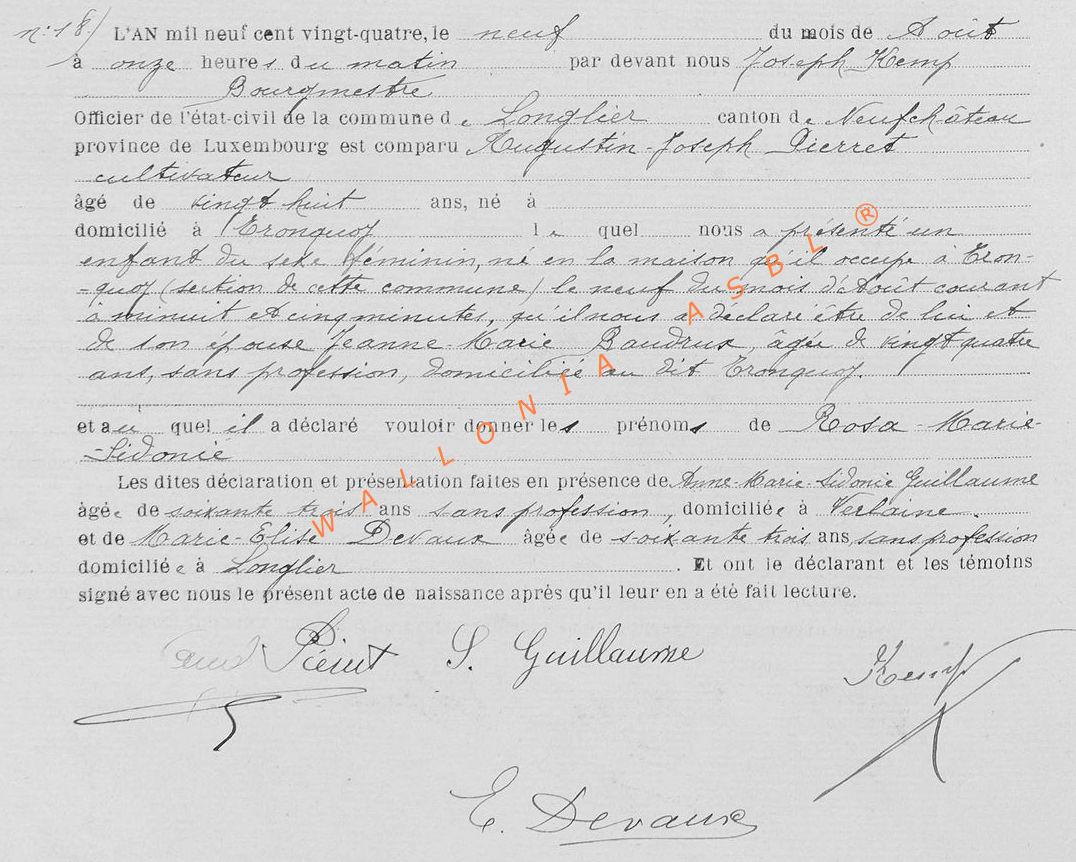 n: 18/ L'AN mil neuf cent vingt-quatre, le neuf du mois de Août
à onze heures du matin par devant nous Joseph Kemp
Bourgmestre
Officier de l'état-civil de la commune de Longlier canton de Neufchâteau
province de Luxembourg est comparu Augustin-Joseph Pierret
cultivateur
âgé de vingt huit ans, né à
domicilié à Tronquoy le quel nous a présenté un
enfant du sexe féminin, né en la maison qu'il occupe à Tron-
=quoy (section de cette commune) le neuf du mois d'Août courant
à minuit et cinq minutes, qu'il nous a déclaré être de lui et
de son épouse Jeanne-Marie Baudrux, âgée de vingt quatre
ans, sans profession, domiciliée au dit Tronquoy.
et au quel il a déclaré vouloir donner les prénoms de Rosa-Marie-
-Sidonie
Les dites déclaration et présentation faites en présence de Anne-Marie-Sidonie Guillaume
âgée de soixante trois ans sans profession, domiciliée à Verlaine.
et de Marie-Elise Devaux âgée de soixante trois ans, sans profession
domiciliée à Longlier. Et ont le déclarant et les témoins
signé avec nous le présent acte de naissance après qu'il leur en a été fait lecture.
S. Guillaume Kemp
E. Devaux
WALLONIA ASBL ®